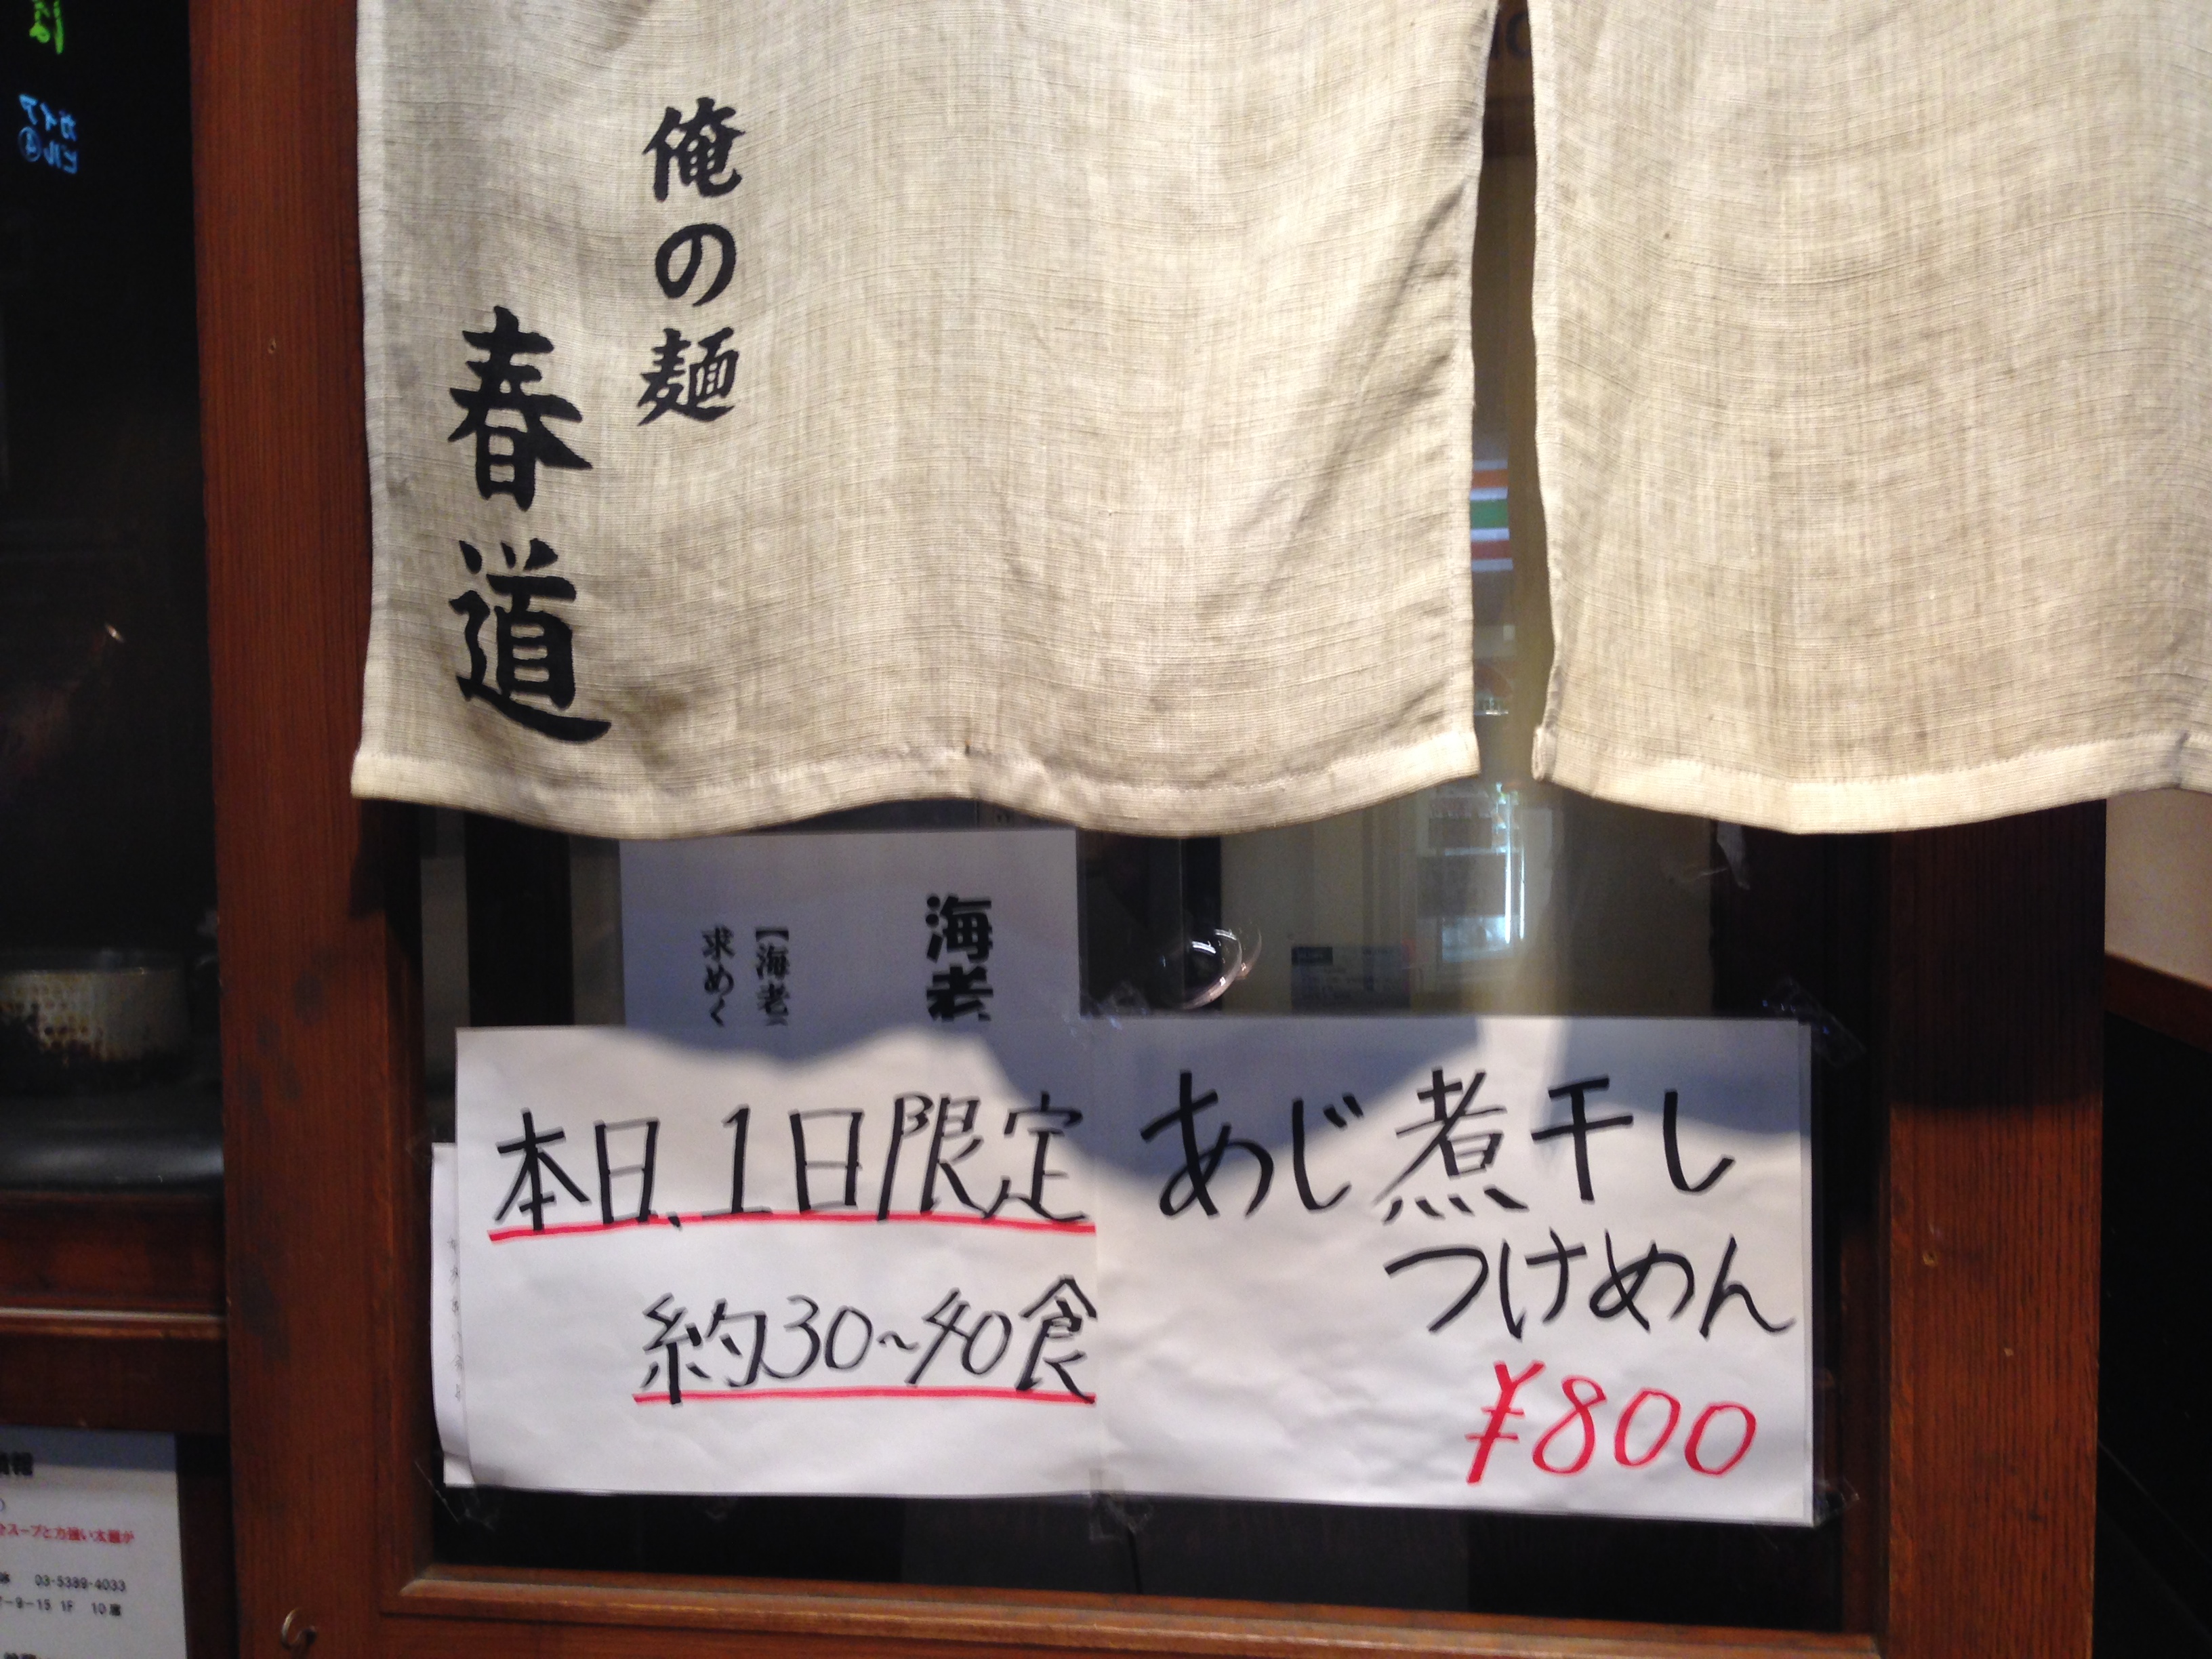 俺の麺
春道
海老
【海老
求めく
本日、1日限定
約30~40食
あじ煮干し
つけめん
¥800
スープと力強い太麺が
03-5389-4033
-9-15 1F 10席
ガイア
ビル④